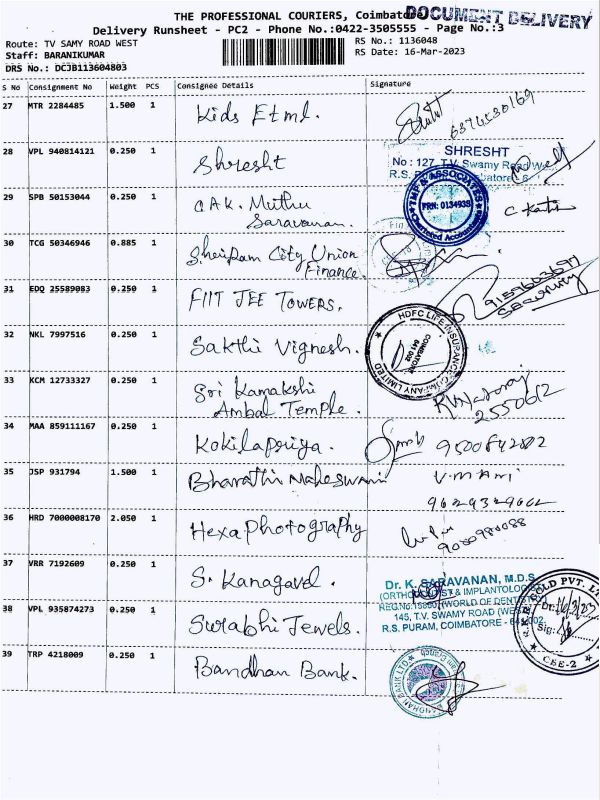 THE PROFESSIONAL COURIERS, Coimbatore
DOCUMENT DELIVERY
Delivery Runsheet - PC2 - Phone No.:0422-3505555 - Page No.:3
Route: TV SAMY ROAD WEST
RS No.: 1136048
Staff: BARANIKUMAR
RS Date: 16-Mar-2023
DRS No.: DCJB113604803
S No Consignment No Weight PCS Consignee Details Signature
27 MTR 2284485 1.500 1 Kids Etml.
6374530169
28 VPL 940814121 0.250 1 Shresht
SHRESHT
No : 127, T.V. Swamy Road
R.S.
29 SPB 50153044 0.250 1 C.A.K. Muthu
Saravanan.
& ASSOCIATES
FRN: 013493S
Chartered Accountants
30 TCG 50346946 0.885 1 Shriram City Union
Finance.
31 EDQ 25589083 0.250 1 FIIT JEE TOWERS.
Security
32 NKL 7997516 0.250 1 Sakthi Vignesh.
HDFC LIFE INSURANCE COMPANY LIMITED
COIMBATORE
641 002
33 KCM 12733327 0.250 1 Sri Kamakshi
Ambal Temple.
34 MAA 859111167 0.250 1 Kokilapriya.
35 JSP 931794 1.500 1 Bharathi Maheswari
V. MANI
36 HRD 7000008170 2.050 1 Hexa Photography
37 VRR 7192609 0.250 1 S. Kanagavel.
Dr. K. SARAVANAN, M.D.S.
38 VPL 935874273 0.250 1 Surabhi Jewels.
145, T.V. SWAMY ROAD
R.S. PURAM, COIMBATORE - 641 002.
GOLD PVT. LTD
Dt: 16/3/23
Sig:
CBE-2
39 TRP 4218009 0.250 1 Bandhan Bank.
BANDHAN BANK LTD